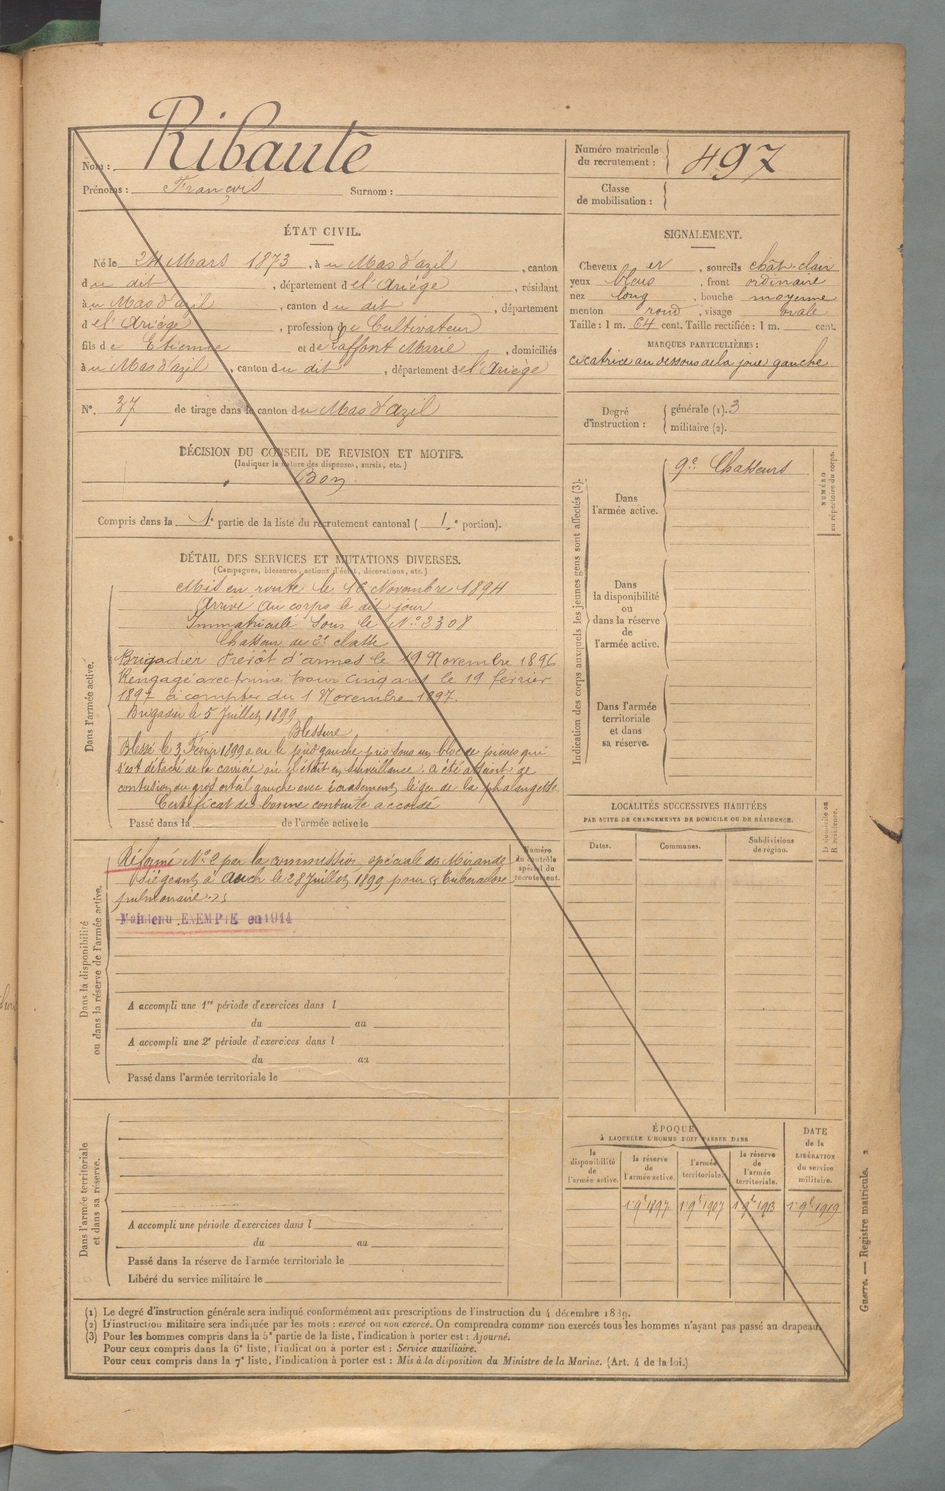 Nom : Ribaute
Prénoms : François Surnom :
Numéro matricule du recrutement : 497
Classe de mobilisation :
ÉTAT CIVIL.
Né le 24 Mars 1873, à u Mas d'azil, canton
du dit, département de l'Ariège, résidant
à u Mas d'azil, canton du dit, département
de l'Ariège, profession de Cultivateur
fils de Etienne et de Laffont Marie, domiciliés
à u Mas d'azil, canton du dit, département de l'Ariège
N°. 37 de tirage dans le canton du Mas d'Azil
DÉCISION DU CONSEIL DE REVISION ET MOTIFS.
(Indiquer la nature des dispenses, sursis, etc.)
Bon
Compris dans la 1e partie de la liste du recrutement cantonal ( 1e portion).
SIGNALEMENT.
Cheveux et, sourcils chât-clair
yeux bleus, front ordinaire
nez long, bouche moyenne
menton rond, visage ovale
Taille : 1 m. 64 cent. Taille rectifiée : 1 m. cent.
MARQUES PARTICULIÈRES :
cicatrice au dessous de la joue gauche
Degré d'instruction : générale (1). 3
militaire (2).
DÉTAIL DES SERVICES ET MUTATIONS DIVERSES.
(Campagnes, blessures, actions d'éclat, décorations, etc.)
Dans l'armée active.
Mis en route le 16 Novembre 1894
Arrivé au corps le dit jour
Immatriculé sous le N° 3308
Chasseur de 2e classe
Brigadier Prévôt d'armes le 19 Novembre 1896
Rengagé avec prime pour cinq ans le 19 février
1897 à compter du 1 Novembre 1897.
Brigadier le 5 Juillet 1899
Blessure
Blessé le 3 Février 1899 a eu le pied gauche pris sous un bloc de pierres qui
s'est détaché de la carrière où il était en surveillance. a été atteint de
contusion du gros orteil gauche avec écrasement léger de la phalangette
Certificat de bonne conduite accordé
Passé dans la de l'armée active le
Dans la disponibilité ou dans la réserve de l'armée active.
Réformé N° 2 par la commission spéciale de Mirande
siégeant à Auch le 28 Juillet 1899 pour Tuberculose
pulmonaire
Maintenu EXEMPTE en 1914
Numéro au contrôle spécial du recrutement.
A accompli une 1re période d'exercices dans l
du au
A accompli une 2e période d'exercices dans l
du au
Passé dans l'armée territoriale le
Dans l'armée territoriale et dans sa réserve.
A accompli une période d'exercices dans l
du au
Passé dans la réserve de l'armée territoriale le
Libéré du service militaire le
Indication des corps auxquels les jeunes gens sont affectés (3).
Dans l'armée active. 9e Chasseurs
NUMÉRO au répertoire du corps.
Dans la disponibilité ou dans la réserve de l'armée active.
Dans l'armée territoriale et dans sa réserve.
LOCALITÉS SUCCESSIVES HABITÉES
PAR SUITE DE CHANGEMENTS DE DOMICILE OU DE RÉSIDENCE.
Dates. Communes. Subdivisions de région. D. domicile ou R. résidence.
ÉPOQUE
À LAQUELLE L'HOMME DOIT PASSER DANS
la disponibilité de l'armée active.
la réserve de l'armée active.
l'armée territoriale.
la réserve de l'armée territoriale.
DATE de la LIBÉRATION du service militaire.
1 9e 1897 1 9e 1907 1 9e 1913 1 9e 1919
Guerre. — Registre matricule. 2
(1) Le degré d'instruction générale sera indiqué conformément aux prescriptions de l'instruction du 4 décembre 1889.
(2) L'instruction militaire sera indiquée par les mots : exercé ou non exercé. On comprendra comme non exercés tous les hommes n'ayant pas passé au drapeau.
(3) Pour les hommes compris dans la 5e partie de la liste, l'indication à porter est : Ajourné.
Pour ceux compris dans la 6e liste, l'indication à porter est : Service auxiliaire.
Pour ceux compris dans la 7e liste, l'indication à porter est : Mis à la disposition du Ministre de la Marine. (Art. 4 de la loi.)